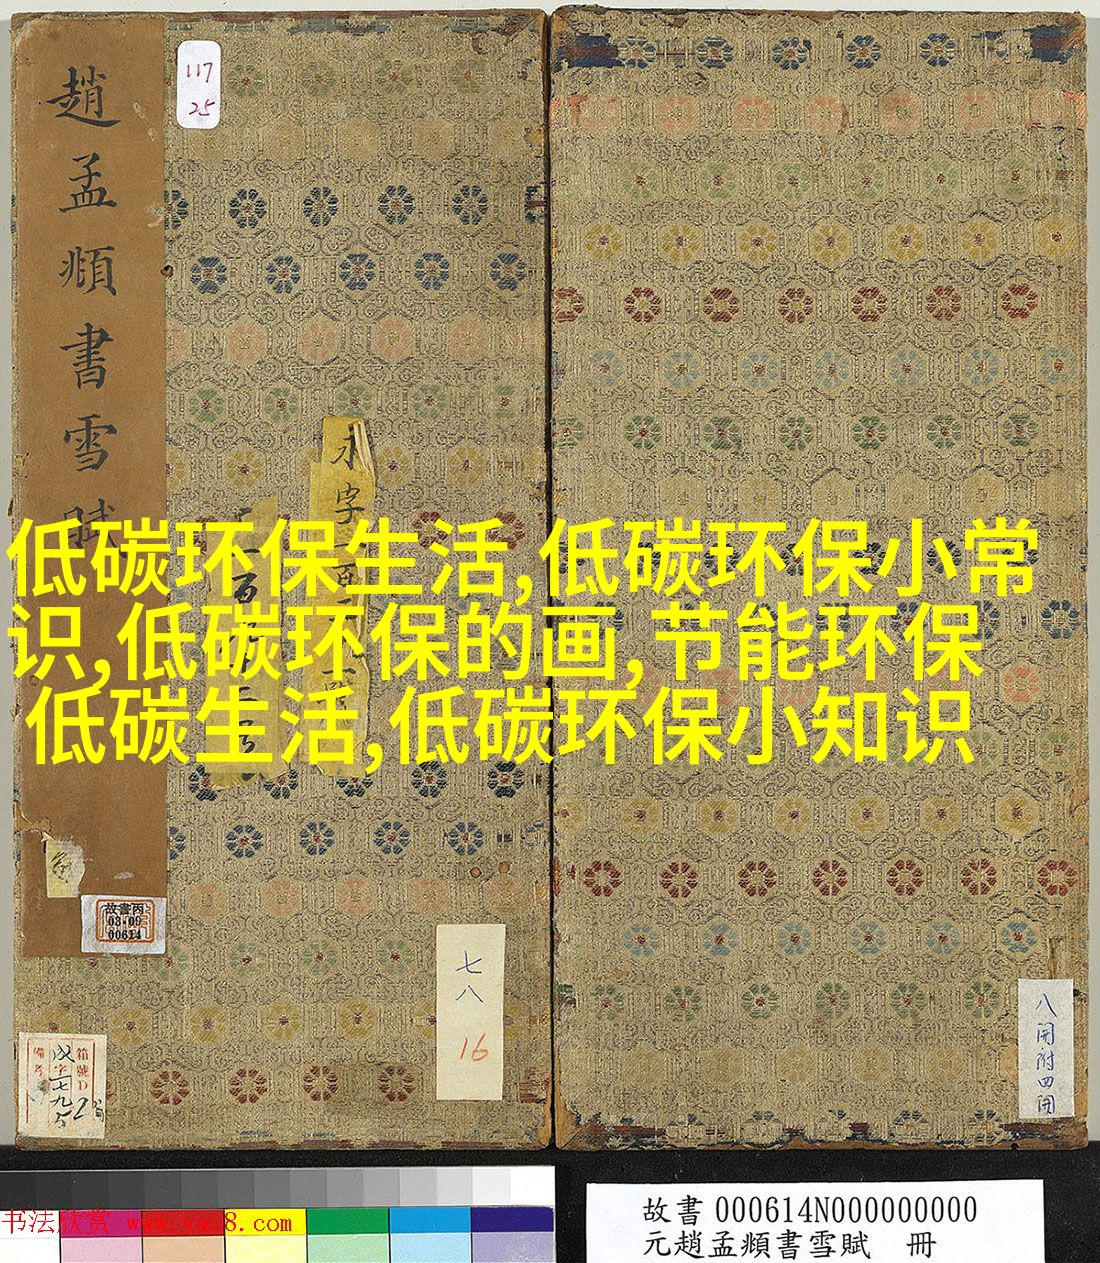 趙孟頫書雪賦
117
25
永字一百
低碳环保生活,低碳环保小常
识,低碳环保的画,节能环保
低碳生活,低碳环保小知识
故書丙
03-09
00614
七八
16
箱號D
備考
八開附四開
书法欣赏 www.yac8.com
故書 000614N000000000
元趙孟頫書雪賦 冊